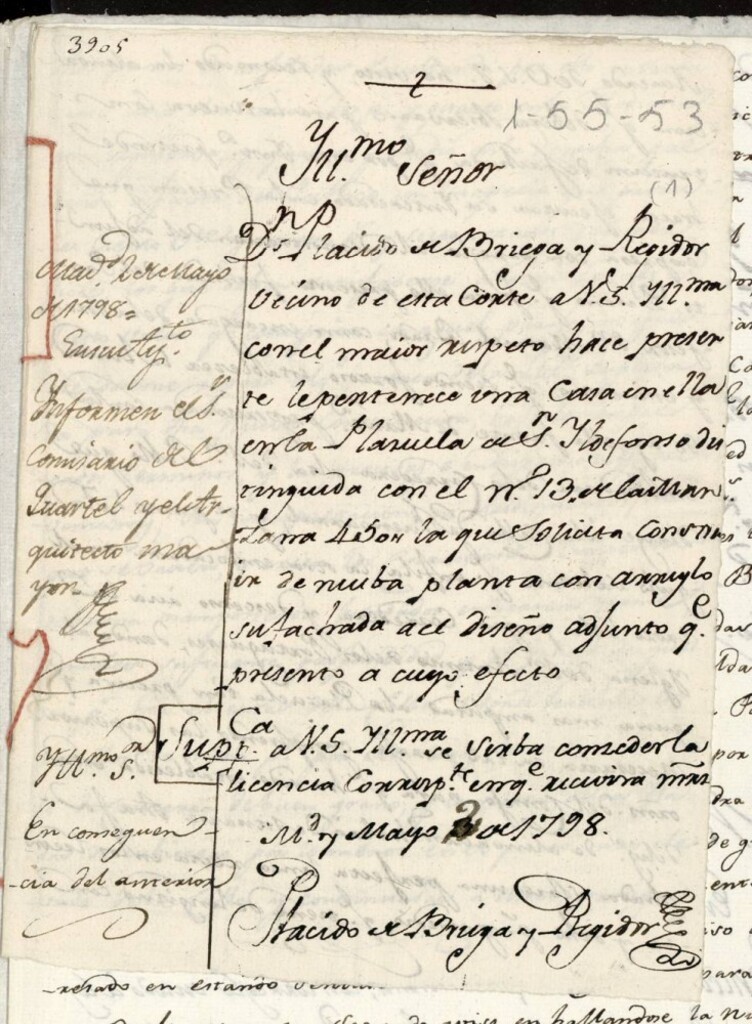 3905
2
1-55-53
Yll.mo Señor
(1)
Dn Placido de Briega y Regidor
Vecino de esta Corte a V.S. Yll.ma
con el maior respeto hace presen
te le pertenece una Casa en ella
en la Plazuela de Sn. Yldefonso dis
tinguida con el n.º 13. de la Man
zana 45 la que Solicita Constru
ir de nueba planta con arreglo
su fachada a el diseño adjunto q.e
presento a cuyo efecto
Supp.ca a V.S. Yll.ma se sirba consederla
licencia Corresp.te en q.e recivira mrd
M.d y Mayo 2 de 1798.
Placido de Briega y Regidor
Mad.d 2 de Mayo
de 1798=
En su Ay.to
Ynformen el S.r
Comisario del
Quartel y el Ar-
quitecto ma
yor
Yll.mo S.or
En consequen-
-cia del anterior
-retado en estando
en hallandose la